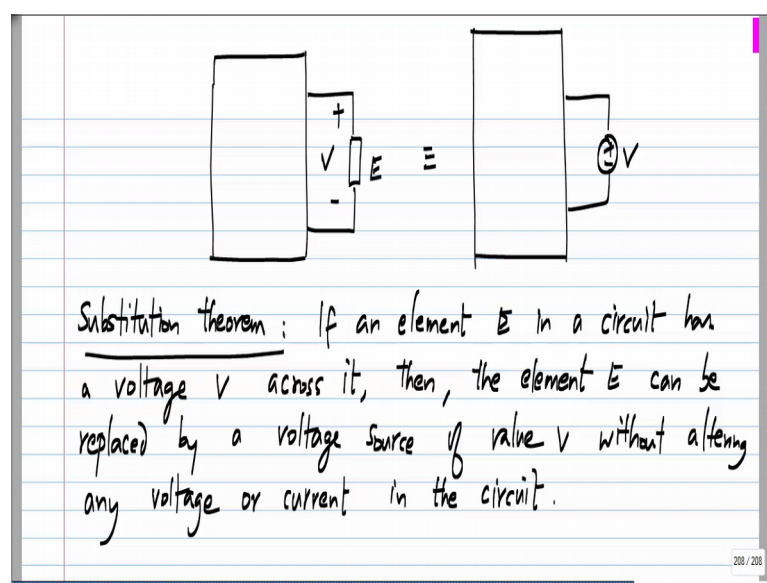 +
V E ≡ ± V
-
Substitution theorem: If an element E in a circuit has
a voltage V across it, then, the element E can be
replaced by a voltage source of value V without altering
any voltage or current in the circuit.
208 / 208